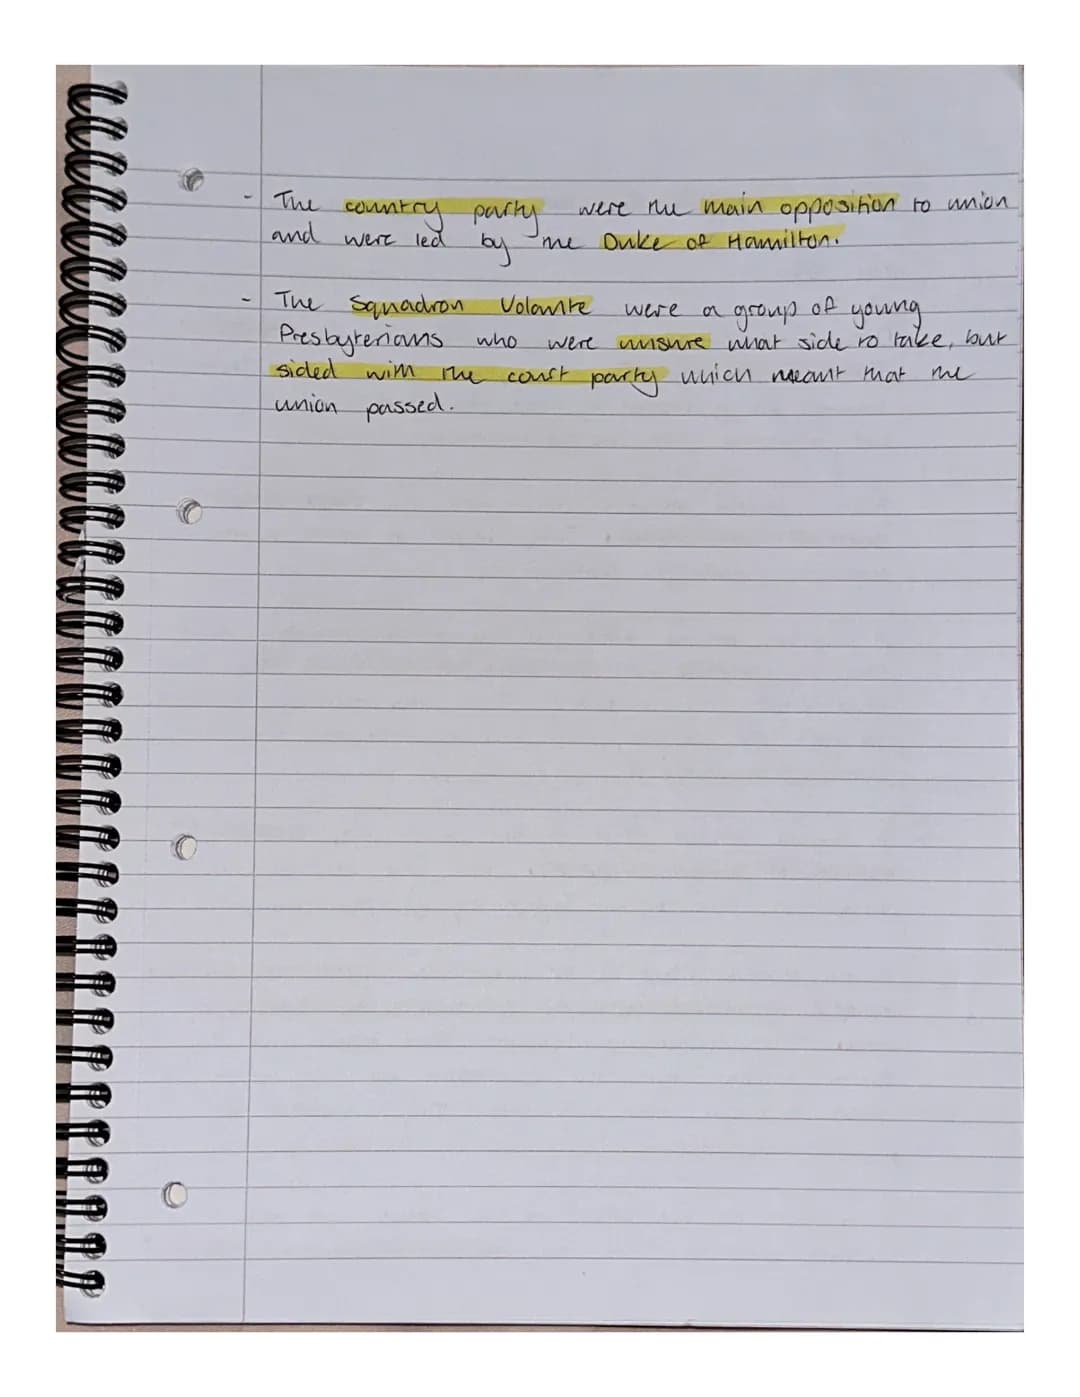 - The country party were the main opposition to union
and were led by the Duke of Hamilton.
- The Squadron Volante were a group of young
Presbyterians who were unsure what side to take, but
sided with the court party which meant that the
union passed.